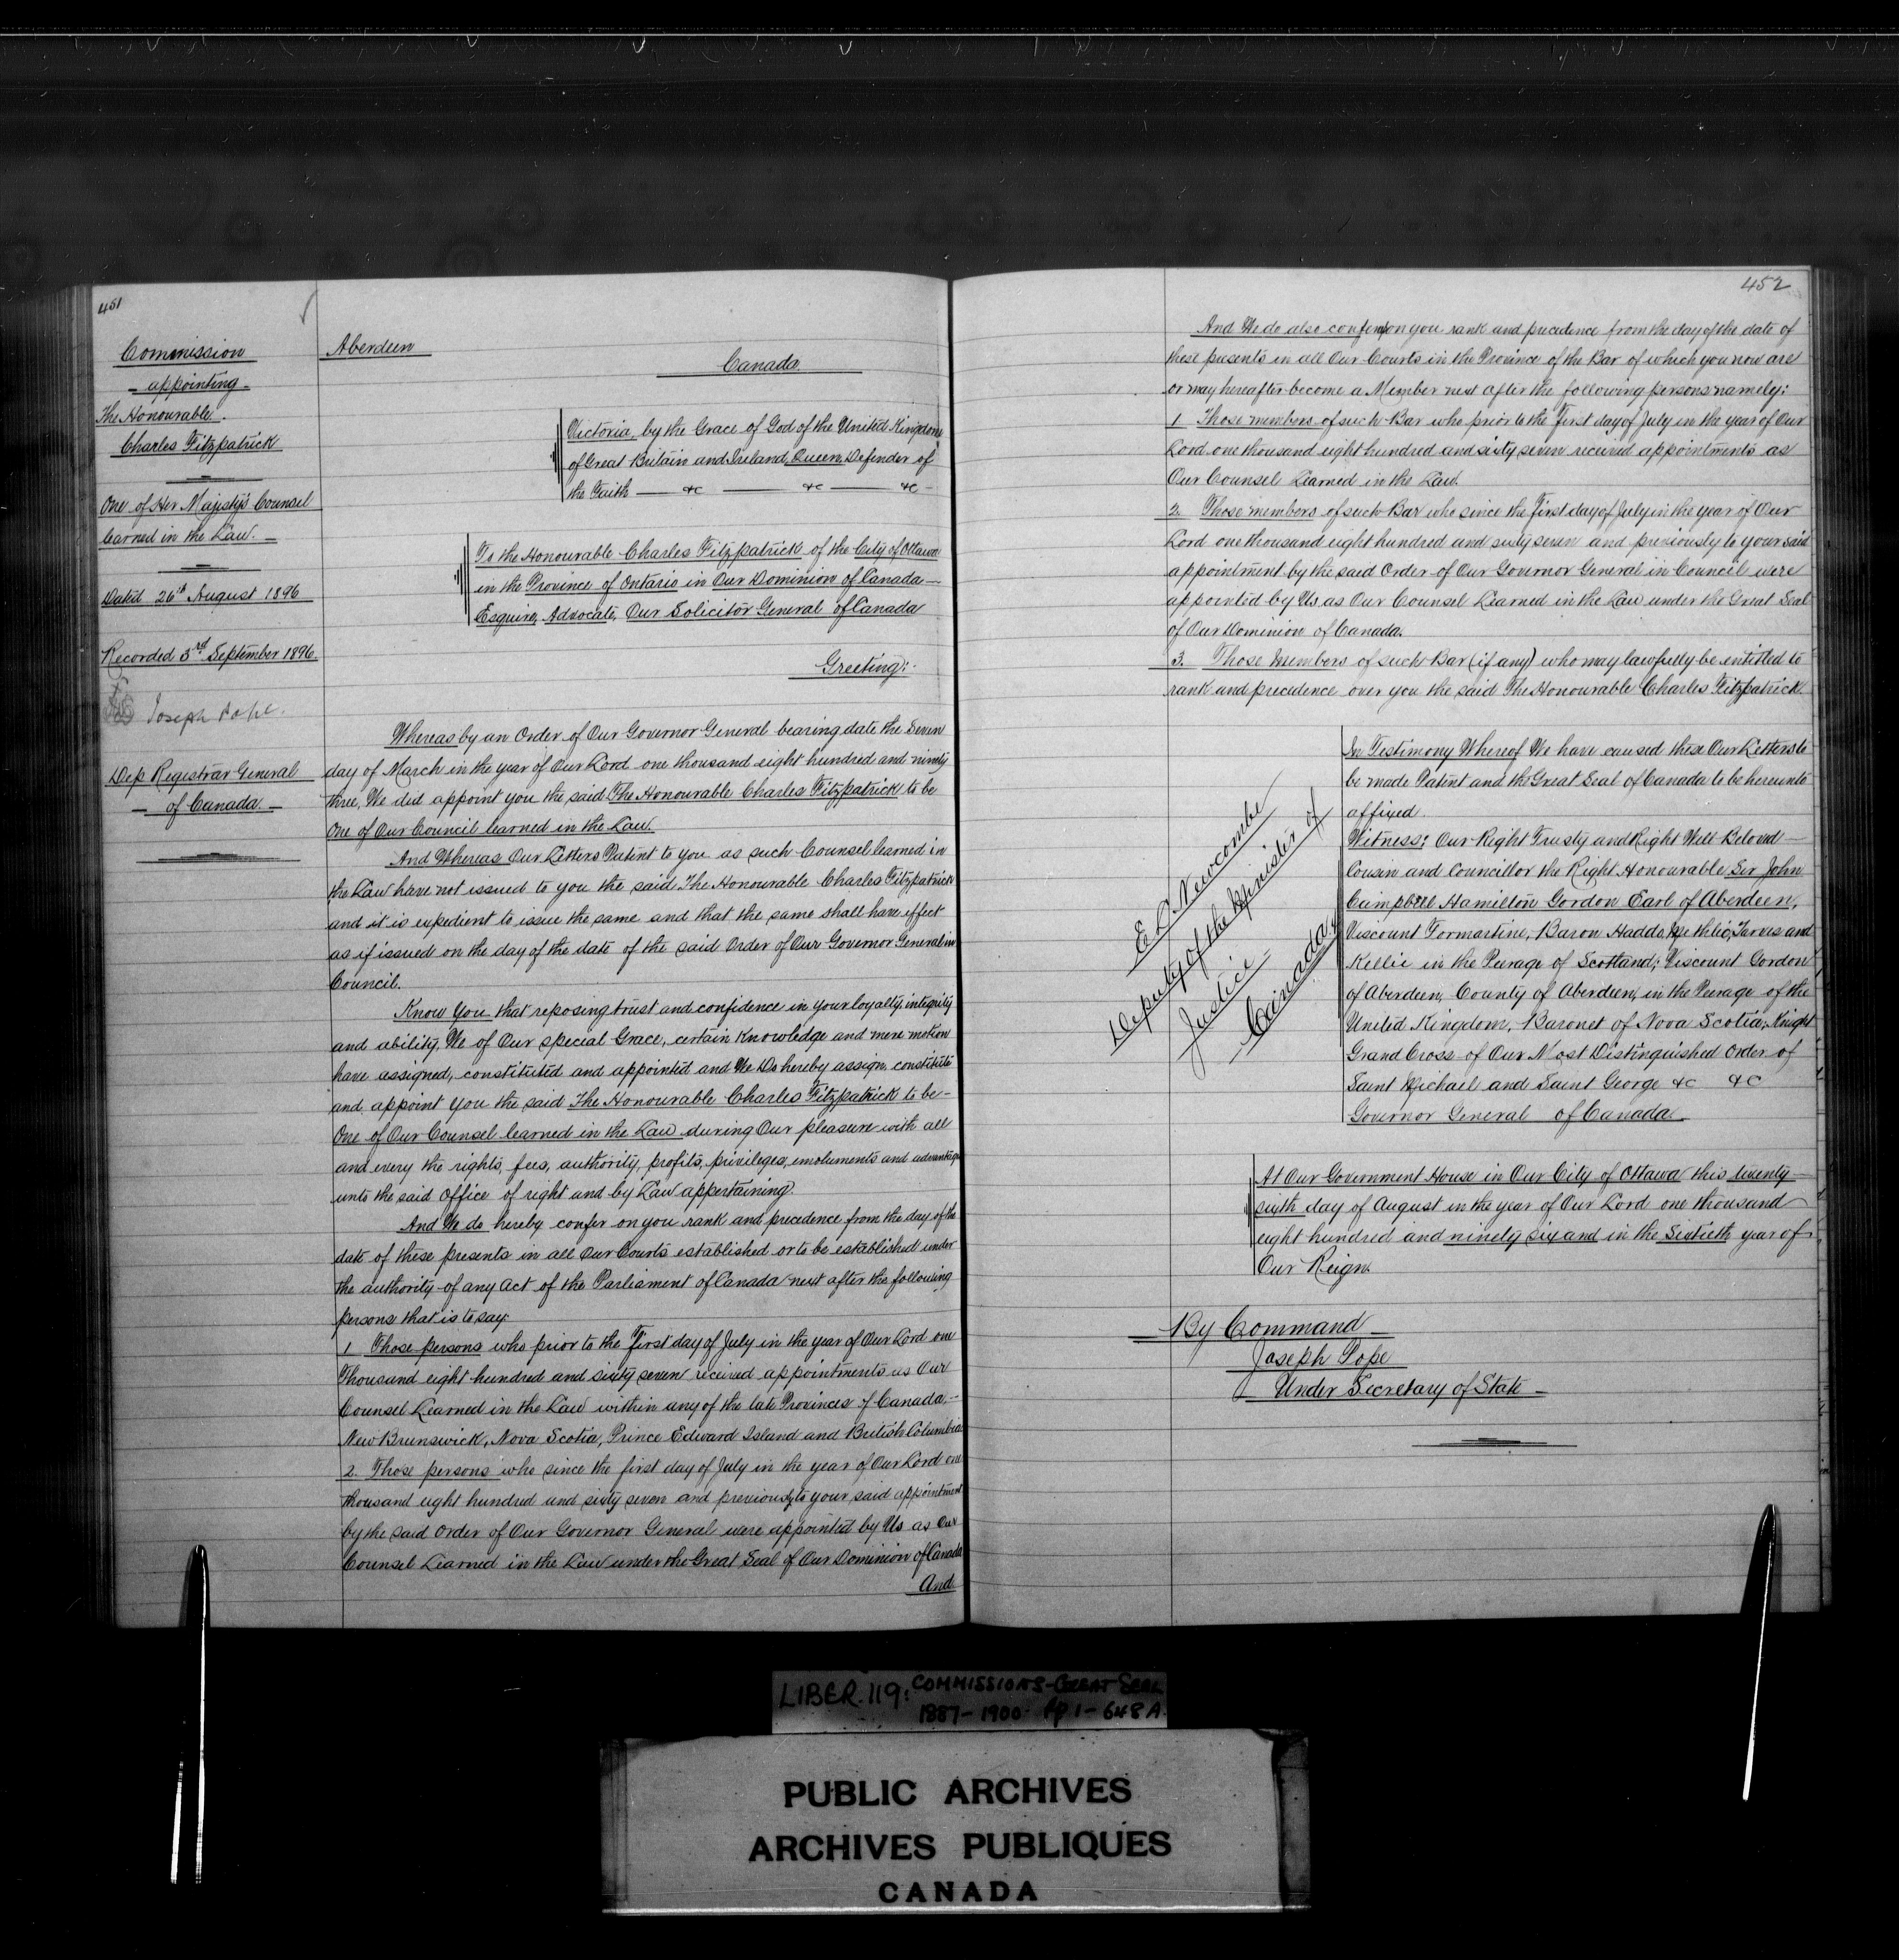 451
Commission
- appointing -
The Honourable.
Charles Fitzpatrick
One of Her Majesty's Counsel
learned in the Law. -
Dated 26th August 1896
Recorded 3rd September 1896.
Joseph Pope.
Dep Registrar General
- of Canada -
Aberdeen
Canada.
Victoria, by the Grace of God of the United Kingdom
of Great Britain and Ireland, Queen, Defender of
the Faith — &c — &c — &c -
To the Honourable Charles Fitzpatrick of the City of Ottawa
in the Province of Ontario in Our Dominion of Canada -
Esquire, Advocate, Our Solicitor General of Canada
Greeting:
Whereas by an Order of Our Governor General bearing date the Seven
day of March in the year of Our Lord one thousand eight hundred and ninety
three, We did appoint you the said The Honourable Charles Fitzpatrick to be
one of Our Council learned in the Law.
And Whereas Our Letters Patent to you as such Counsel learned in
the Law have not issued to you the said The Honourable Charles Fitzpatrick
and it is expedient to issue the same and that the same shall have effect
as if issued on the day of the date of the said Order of Our Governor General in
Council.
Know You that reposing trust and confidence in your loyalty, integrity
and ability, We of Our special Grace, certain knowledge and mere motion
have assigned, constituted and appointed and We Do hereby assign, constitute
and appoint you the said The Honourable Charles Fitzpatrick to be -
One of Our Counsel learned in the Law during Our pleasure with all
and every the rights, fees, authority, profits, privileges, emoluments and advantages
unto the said office of right and by Law appertaining.
And We do hereby confer on you rank and precedence from the day of the
date of these presents in all Our Courts established or to be established under
the authority of any Act of the Parliament of Canada next after the following
persons that is to say:
1 Those persons who prior to the First day of July in the year of Our Lord one
Thousand eight hundred and sixty seven received appointments as Our
Counsel Learned in the Law within any of the late Provinces of Canada, -
New Brunswick, Nova Scotia, Prince Edward Island and British Columbia
2. Those persons who since the first day of July in the year of Our Lord one
thousand eight hundred and sixty seven and previously to your said appointment
by the said Order of Our Governor General were appointed by Us as Our
Counsel Learned in the Law under the Great Seal of Our Dominion of Canada
And
452
And We do also confer on you rank and precedence from the day of the date of
these presents in all Our Courts in the Province of the Bar of which you now are
or may hereafter become a Member next after the following persons namely:
1 Those members of such Bar who prior to the First day of July in the year of Our
Lord one thousand eight hundred and sixty seven received appointments as
Our Counsel Learned in the Law.
2 Those members of such Bar who since the first day of July in the year of Our
Lord one thousand eight hundred and sixty seven and previously to your said
appointment by the said Order of Our Governor General in Council were
appointed by Us as Our Counsel Learned in the Law under the Great Seal
of Our Dominion of Canada.
3. Those Members of such Bar (if any) who may lawfully be entitled to
rank and precedence over you the said The Honourable Charles Fitzpatrick.
In Testimony Whereof We have caused these Our Letters to
be made Patent and the Great Seal of Canada to be hereunto
affixed.
Witness: Our Right Trusty and Right Well-Beloved -
Cousin and Councillor the Right Honourable Sir John
Campbell Hamilton Gordon Earl of Aberdeen,
Viscount Formartine, Baron Haddo, Methlic, Tarves and
Kellie in the Peerage of Scotland; Viscount Gordon
of Aberdeen, County of Aberdeen, in the Peerage of the
United Kingdom, Baronet of Nova Scotia; Knight
Grand Cross of Our Most Distinguished Order of
Saint Michael and Saint George &c &c
Governor General of Canada
E L Newcombe
Deputy of the Minister of
Justice
Canada.
At Our Government House in Our City of Ottawa this twenty
sixth day of August in the year of Our Lord one thousand
eight hundred and ninety six and in the Sixtieth year of
Our Reign.
By Command
Joseph Pope
Under Secretary of State -
LIBER. 119: COMMISSIONS-GREAT SEAL
1887-1900 Pp 1-648A.
PUBLIC ARCHIVES
ARCHIVES PUBLIQUES
CANADA